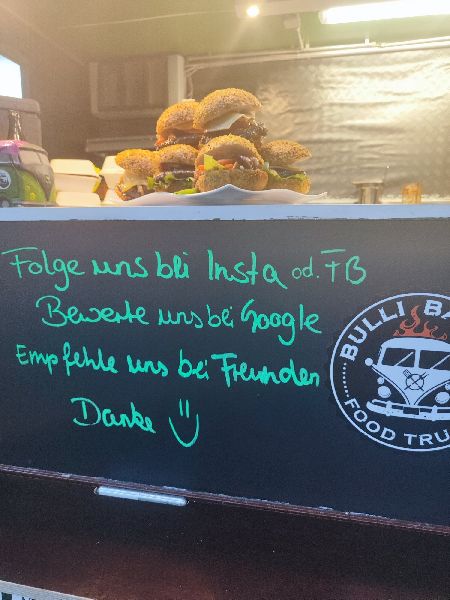 Folge uns bei Insta od. FB
Bewerte uns bei Google
Empfehle uns bei Freunden
Danke
BULLI
FOOD